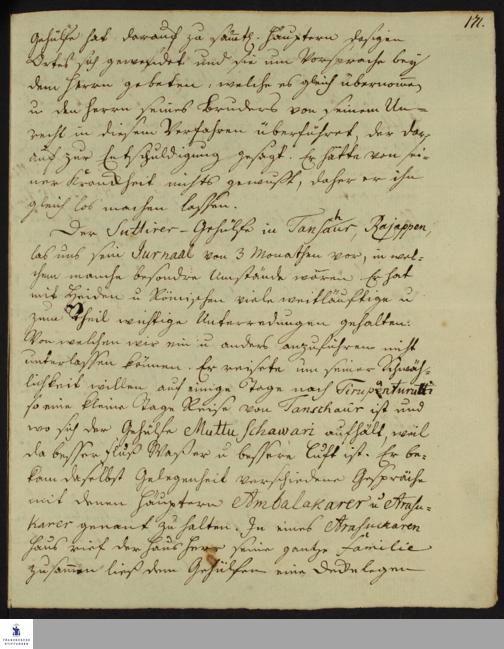 171.
Gehülfe hat darauf zu sämtl. Häuptern dasigen
Ortes sich gewendet und sie um Vorsprache bey
dem Herrn gebeten, welche es gleich übernommen
u den Herrn seines Bruders von seinem Un-
recht in diesem Verfahren überführet, der dar-
auf zur Entschuldigung gesagt: Er hätte von sei-
ner Krankheit nichts gewußt, daher er ihn
gleich los machen lassen.
Der Suttirer-Gehülfe in Tanschaur, Rajappen,
las uns sein Jurnaal von 3 Monathen vor, in wel-
chem manche besondre Umstände waren. Er hat
mit Heiden u Römischen viele weitläuftige u
zum Theil wichtige Unterredungen gehalten:
Von welchen wir ein u anders anzuführen nicht
unterlassen können. Er reisete um seiner Schwäch-
lichkeit willen auf einige Tage nach Tirupanturutti
so eine kleine Tage Reise von Tanschaur ist und
wo sich der Gehülfe Muttu Schawari aufhält, weil
da besser Fluß Waßer u bessere Luft ist. Er be-
kam daselbst Gelegenheit verschiedene Gespräche
mit denen Häuptern Ambalakarer u Arasu-
karer genant zu halten. In eines Arasukaren
Haus rief der Haus Herr seine gantze Familie
zusammen ließ dem Gehülfen eine Decke legen
FRANCKESCHE
STIFTUNGEN